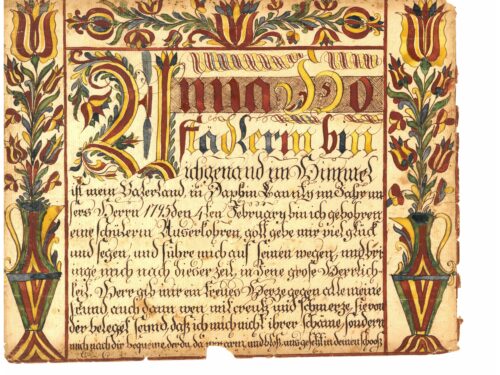 Anna Ho
städlerin bin
ich genand im Himmel
ist mein Vaterland, in Daphin Caunty im Jahr un
sers Herrn 1793 den 4ten February bin ich gebohren
eine schülerin Auserkohren, gott gebe mir viel glück
und segen, und führe mich auf seinen wegen, und brin
ge mich nach dieser Zeit, in Jene grose Herrlich
keit, Herr gib mir ein freües Herze gegen alle meine
feind auch dann wen mit creutz und schmerze, sie von
der belegt seind, daß ich mich nicht ihrer schäme, sondern
mich nach dir bequeme der du da arm, und bloß, uns